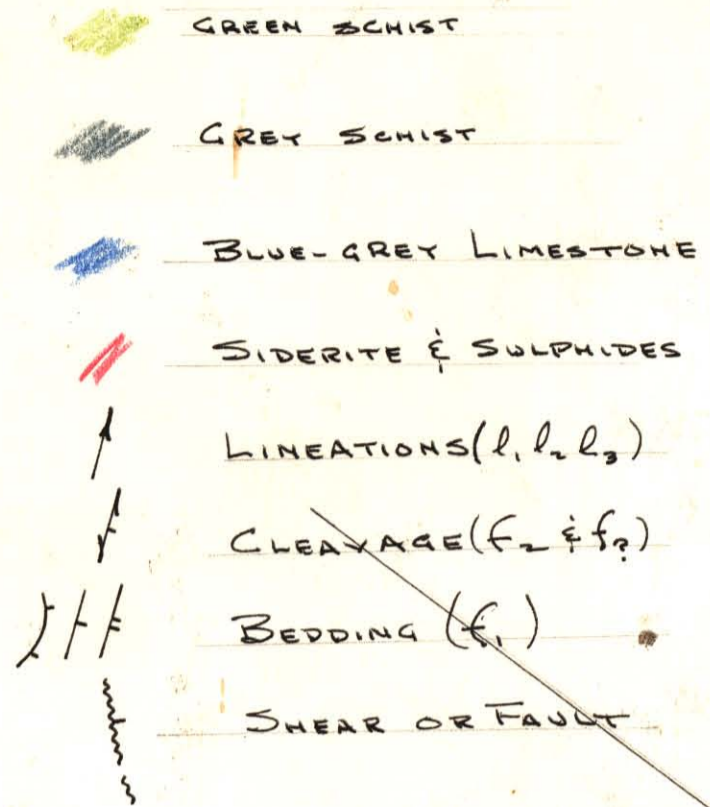 GREEN SCHIST
GREY SCHIST
BLUE-GREY LIMESTONE
SIDERITE & SULPHIDES
LINEATIONS (l₁ l₂ l₃)
CLEAVAGE (f₂ & f?)
BEDDING (f₁)
SHEAR OR FAULT